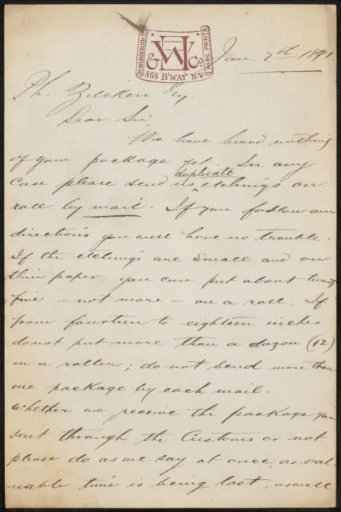 & W Co
868 B'WAY N.Y.
Jan. 7th 1891
Ph. Zilcken Esq.
Dear Sir,
We have heard nothing
of your package yet. In any
duplicate
case please send us etchings on
roll by mail. If you follow our
directions you will have no trouble.
If the etchings are small and on
thin paper you can put about twenty
five – not more – on a roll. If
from fourteen to eighteen inches
do not put more than a dozen (12)
on a roller; do not send more than
one package by each mail.
Whether we receive the package you
sent through the Customs or not
please do as we say at once, as val-
uable time is being lost, as well